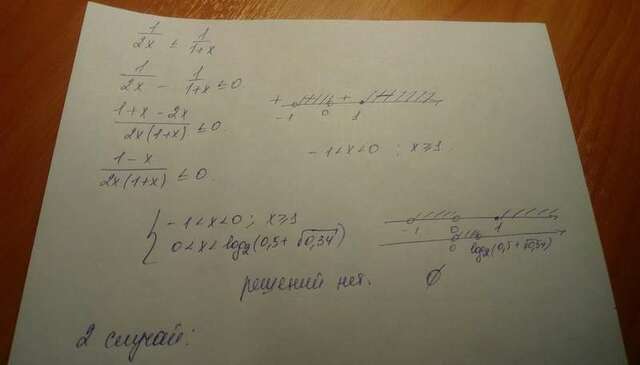 1/2x ≤ 1/1+x
1/2x - 1/1+x ≤ 0
1+x-2x/2x(1+x) ≤ 0
+ + -1 0 1
1-x/2x(1+x) ≤ 0
-1<x<0 ; x≥1
{ -1<x<0 ; x≥1
0<x<log₂(0,5+√0,34)
-1 0 1
0 log₂(0,5+√0,34)
решений нет. ∅
2 случай: